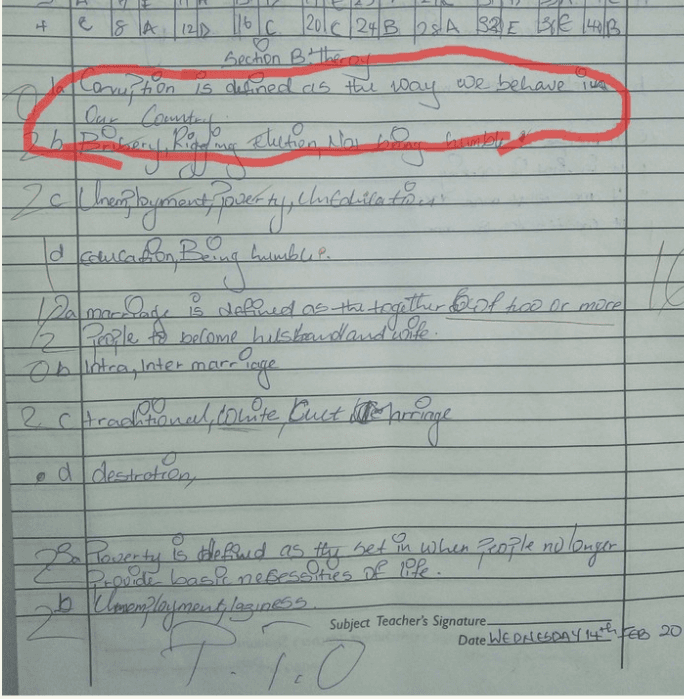 4 | C | 8 | A | 12 | D | 16 | C | 20 | C | 24 | B | 28 | A | 32 | E | 36 | E | 40 | B
Section B: Theory
0 1a Corruption is defined as the way we behave in
Our Country.
2 b Bribery, Rigging Elution, Not being humble.
2 c Unemployment, Poverty, Uneducation
1 d Education, Being humble.
1/2 2a marriage is defined as the together of two or more
People to become husband and wife.
0 b Intra, Inter marriage
2 c traditional, white, Cuct marriage
d destration,
2 3a Poverty is defined as the set in when People no longer
Provide basic necessities of life.
2 b Unemployment, laziness
Subject Teacher's Signature
Date WEDNESDAY 14th FEB 20
P.T.O